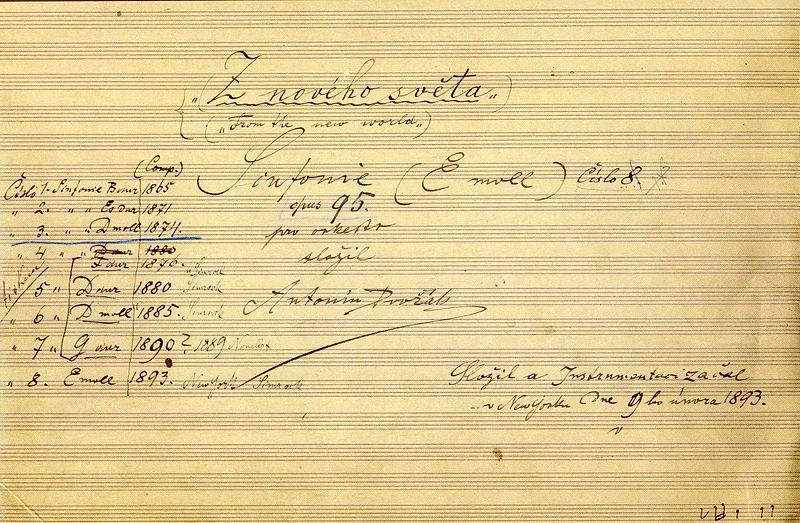 „Z nového světa„
(„From the new world„)
Sinfonie (E moll) Číslo 8.
opus 95.
pro orkestr
složil
Antonín Dvořák
(Comp.)
Číslo 1. Sinfonie B dur 1865
„ 2. „ „ Es dur 1871
„ 3. „ „ D moll 1874.
„ 4 „ „ D dur 1880
F dur 1876. Simrock
„ 5 „ D dur 1880 Simrock
„ 6 „ D moll 1885. Simrock
„ 7 „ G dur 1890? 1889 Novello
„ 8. E moll 1893. New York Simrock
Složil a Instrumentaci začal
v New Yorku dne 9ho února 1893.